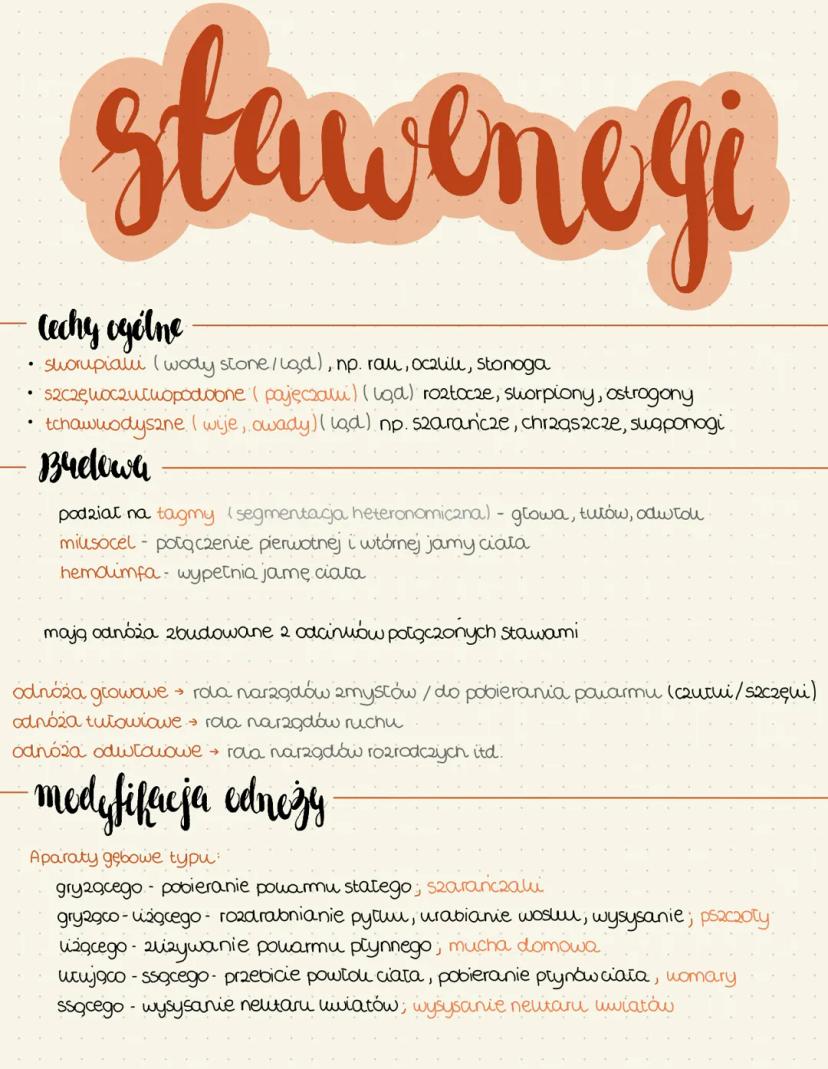 stawonogi
Cechy ogólne
• skorupiaki (wody słone/ląd), np. rak, oczlik, stonoga
• szczękoczułkopodobne (pajęczaki) (ląd) roztocze, skorpiony, ostrogony
• tchawkodyszne (wije, owady) (ląd) np. szarańcze, chrząszcze, skąponogi
Budowa
podział na tagmy (segmentacja heteronomiczna) - głowa, tułów, odwłok
miksocel - połączenie pierwotnej i wtórnej jamy ciała
hemolimfa - wypełnia jamę ciała
mają odnóża zbudowane z odcinków połączonych stawami
odnóża głowowe → rola narządów zmysłów / do pobierania pokarmu (czułki/szczęki)
odnóża tułowiowe → rola narządów ruchu
odnóża odwłokowe → rola narządów rozrodczych itd.
modyfikacja odnóży
Aparaty gębowe typu:
gryzącego - pobieranie pokarmu stałego; szarańczaki
gryząco-liżącego - rozdrabnianie pyłku, urabianie wosku, wysysanie; pszczoły
liżącego - zlizywanie pokarmu płynnego; mucha domowa
kłująco-ssącego - przebicie powłok ciała, pobieranie płynów ciała, komary
ssącego - wysysanie nektaru kwiatów; wysysanie nektaru kwiatów